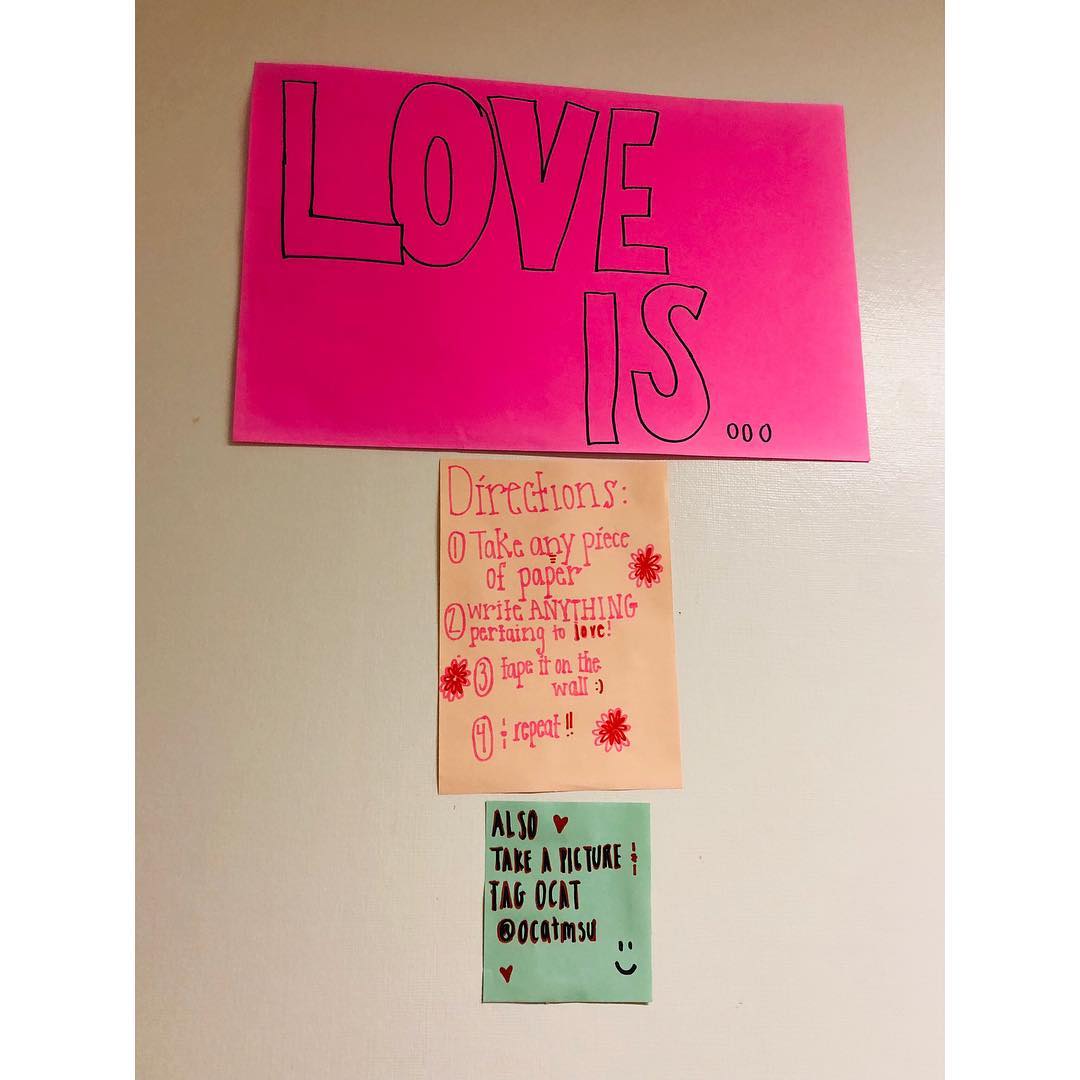 LOVE
IS...
Directions:
① Take any piece
of paper
② write ANYTHING
pertaing to love!
③ tape it on the
wall :)
④ & repeat!!
ALSO ♥
TAKE A PICTURE &
TAG OCAT
@ocatmsu